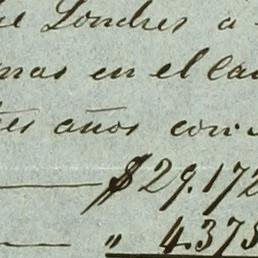 de Londres a
mas en el la
tres años con
$29.172
" 4.375